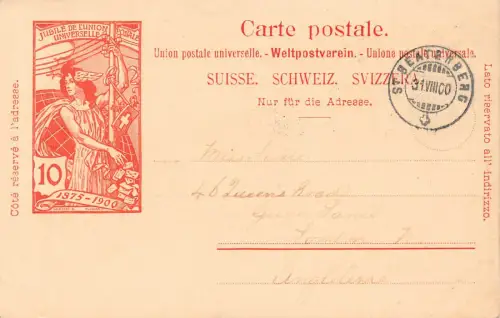 Carte postale.
Union postale universelle. - Weltpostverein. - Unione postale universale.
SUISSE. SCHWEIZ. SVIZZERA.
Nur für die Adresse.
Côté réservé à l'adresse.
Lato riservato all' indirizzo.
JUBILÉ DE L'UNION
UNIVERSELLE
10
1875-1900
ST. BEATENBERG
31.VIII.00
46 Queens Road
London